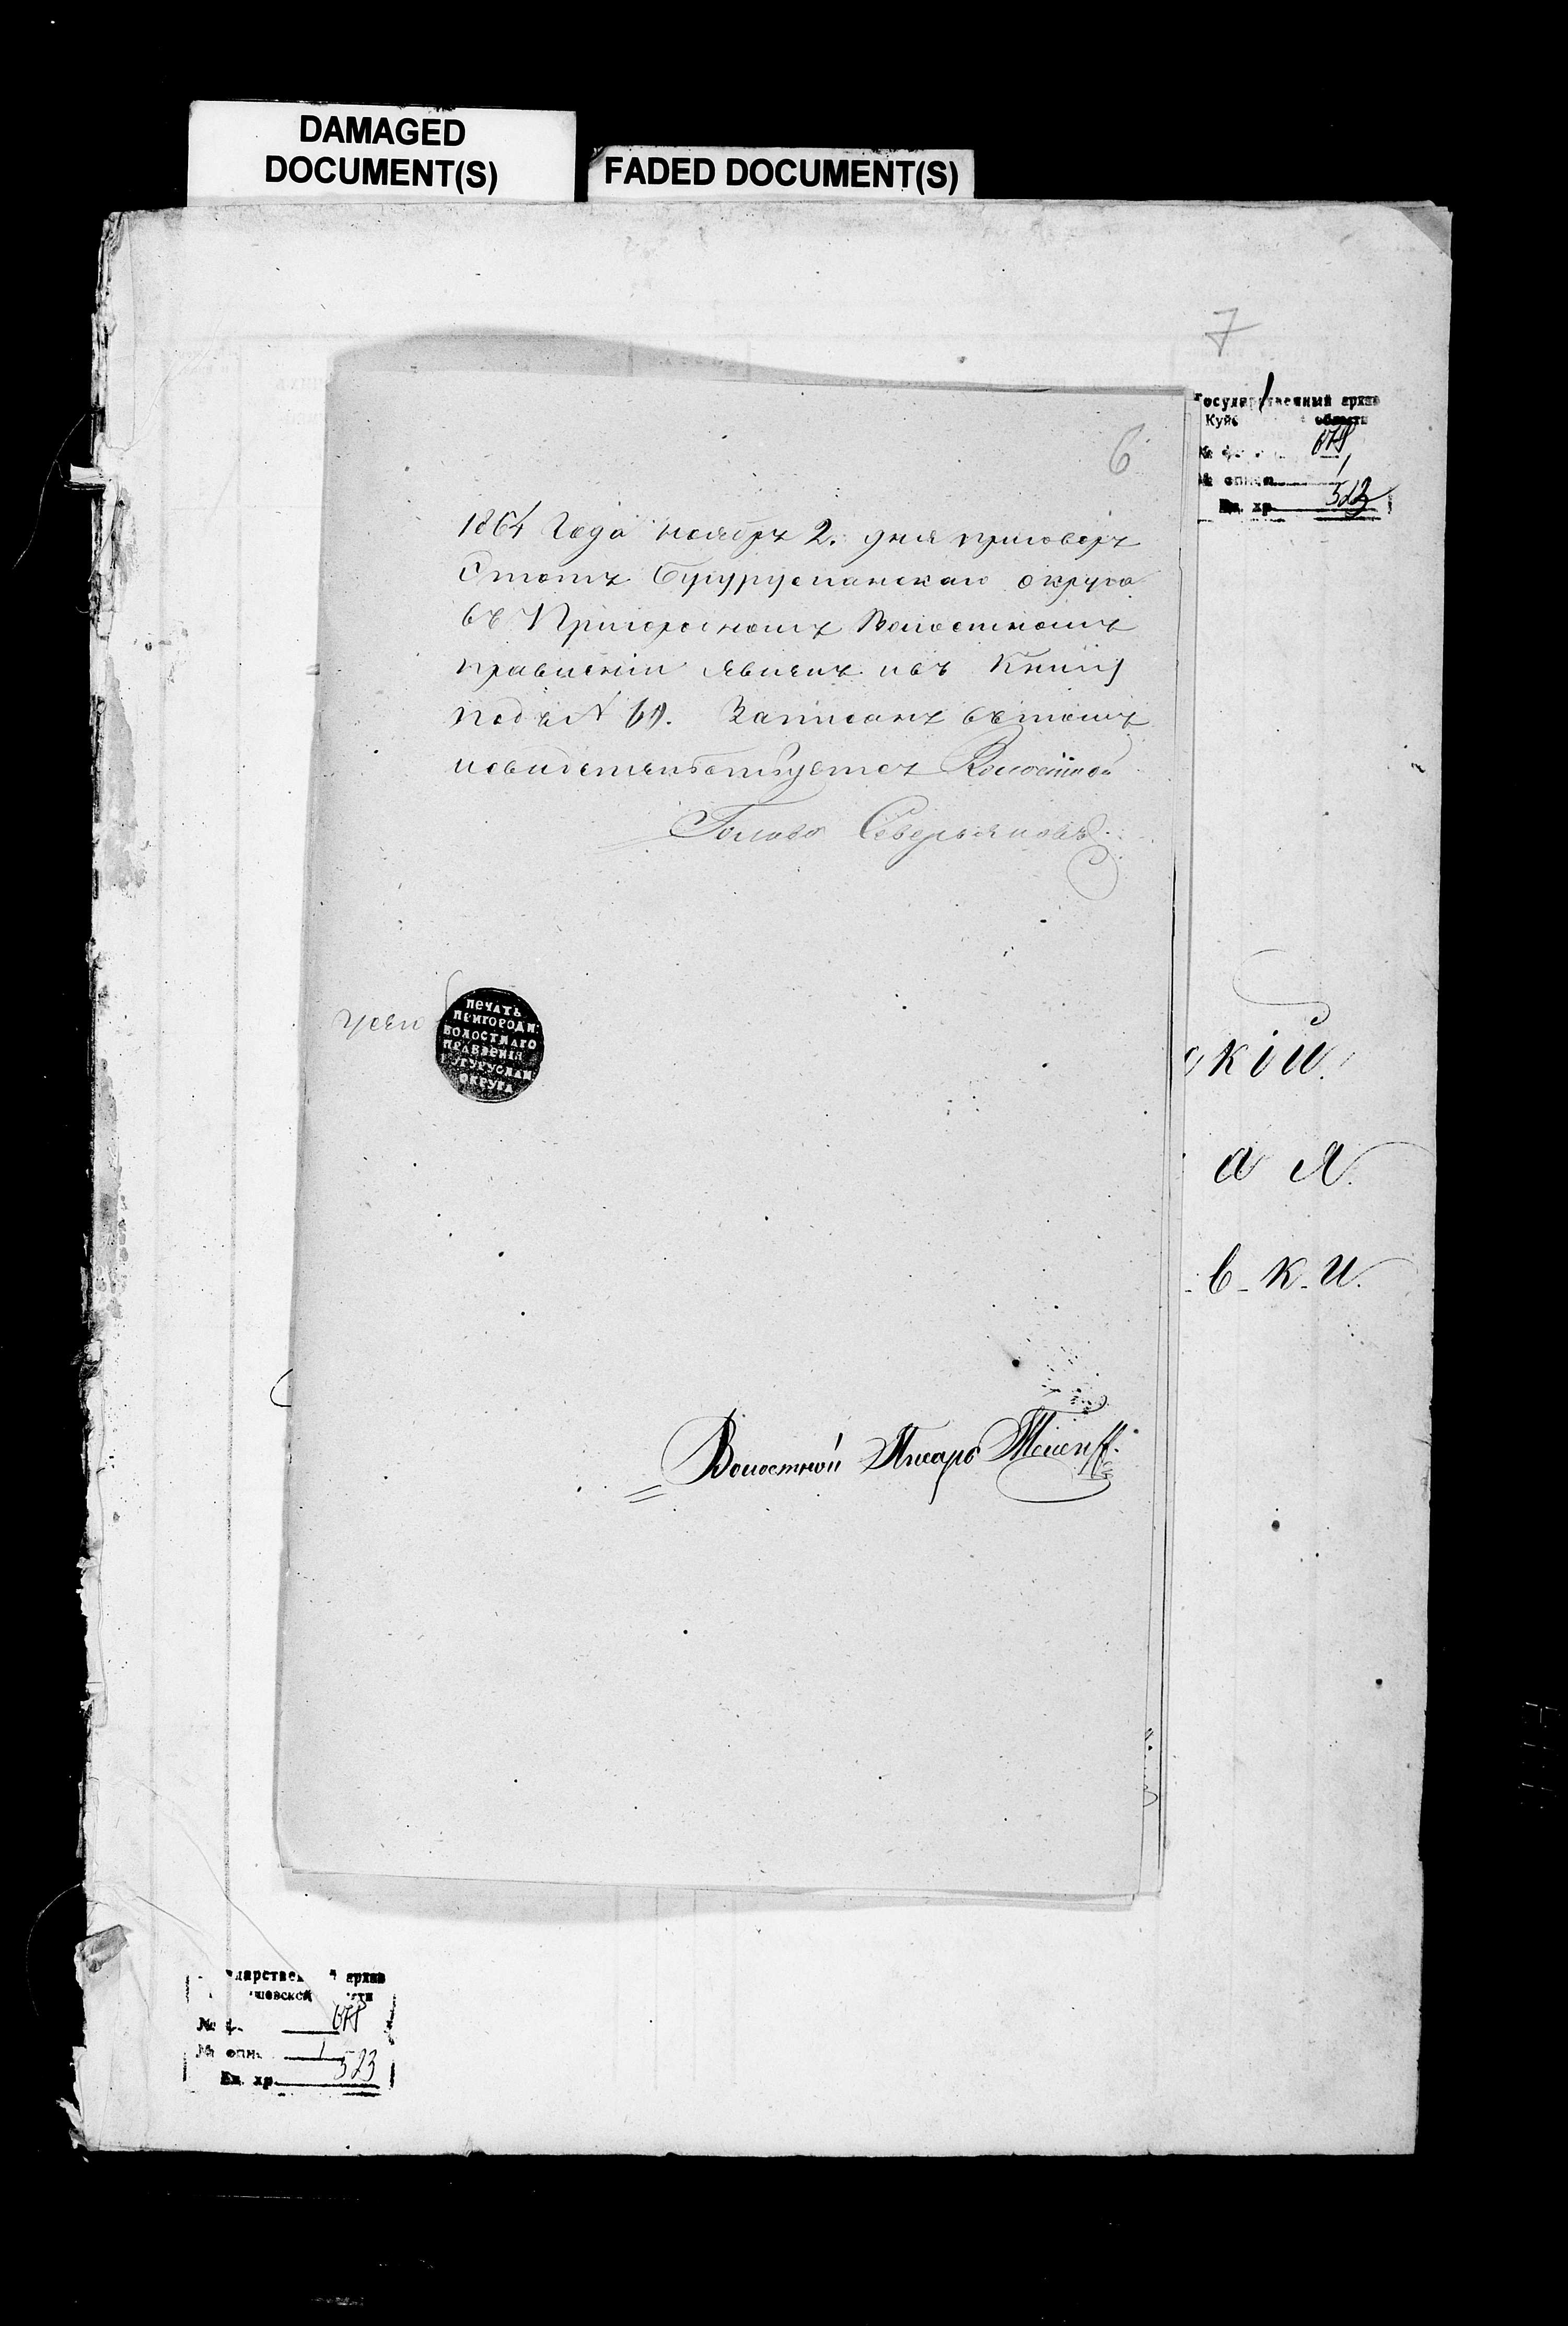 DAMAGED
DOCUMENT(S)
FADED DOCUMENT(S)
7
Государственный архив
Куйб области
№ ф. 678
№ описи 1
Ед. хр. 523
6
1864 Года ноябръ 2. дня приговоръ
Этотъ Бугурусланскаго округа
въ Пригородномъ Волостномъ
правленіи явленъ ивъ Книгу
подъ № 60. Записанъ вътомъ
исвидетельствуетсъ Волостной
Голова Северьяновъ
ПЕЧАТЬ
ПРИГОРОДН:
ВОЛОСТНАГО
ПРАВЛЕНІЯ
БУГУРУСЛАН:
ОКРУГА
кій.
а я.
в-к-и.
Волостной Писарь
дарствен архив
шовской сти
№ ф. 678
№ опи. 1
Ед. хр. 523